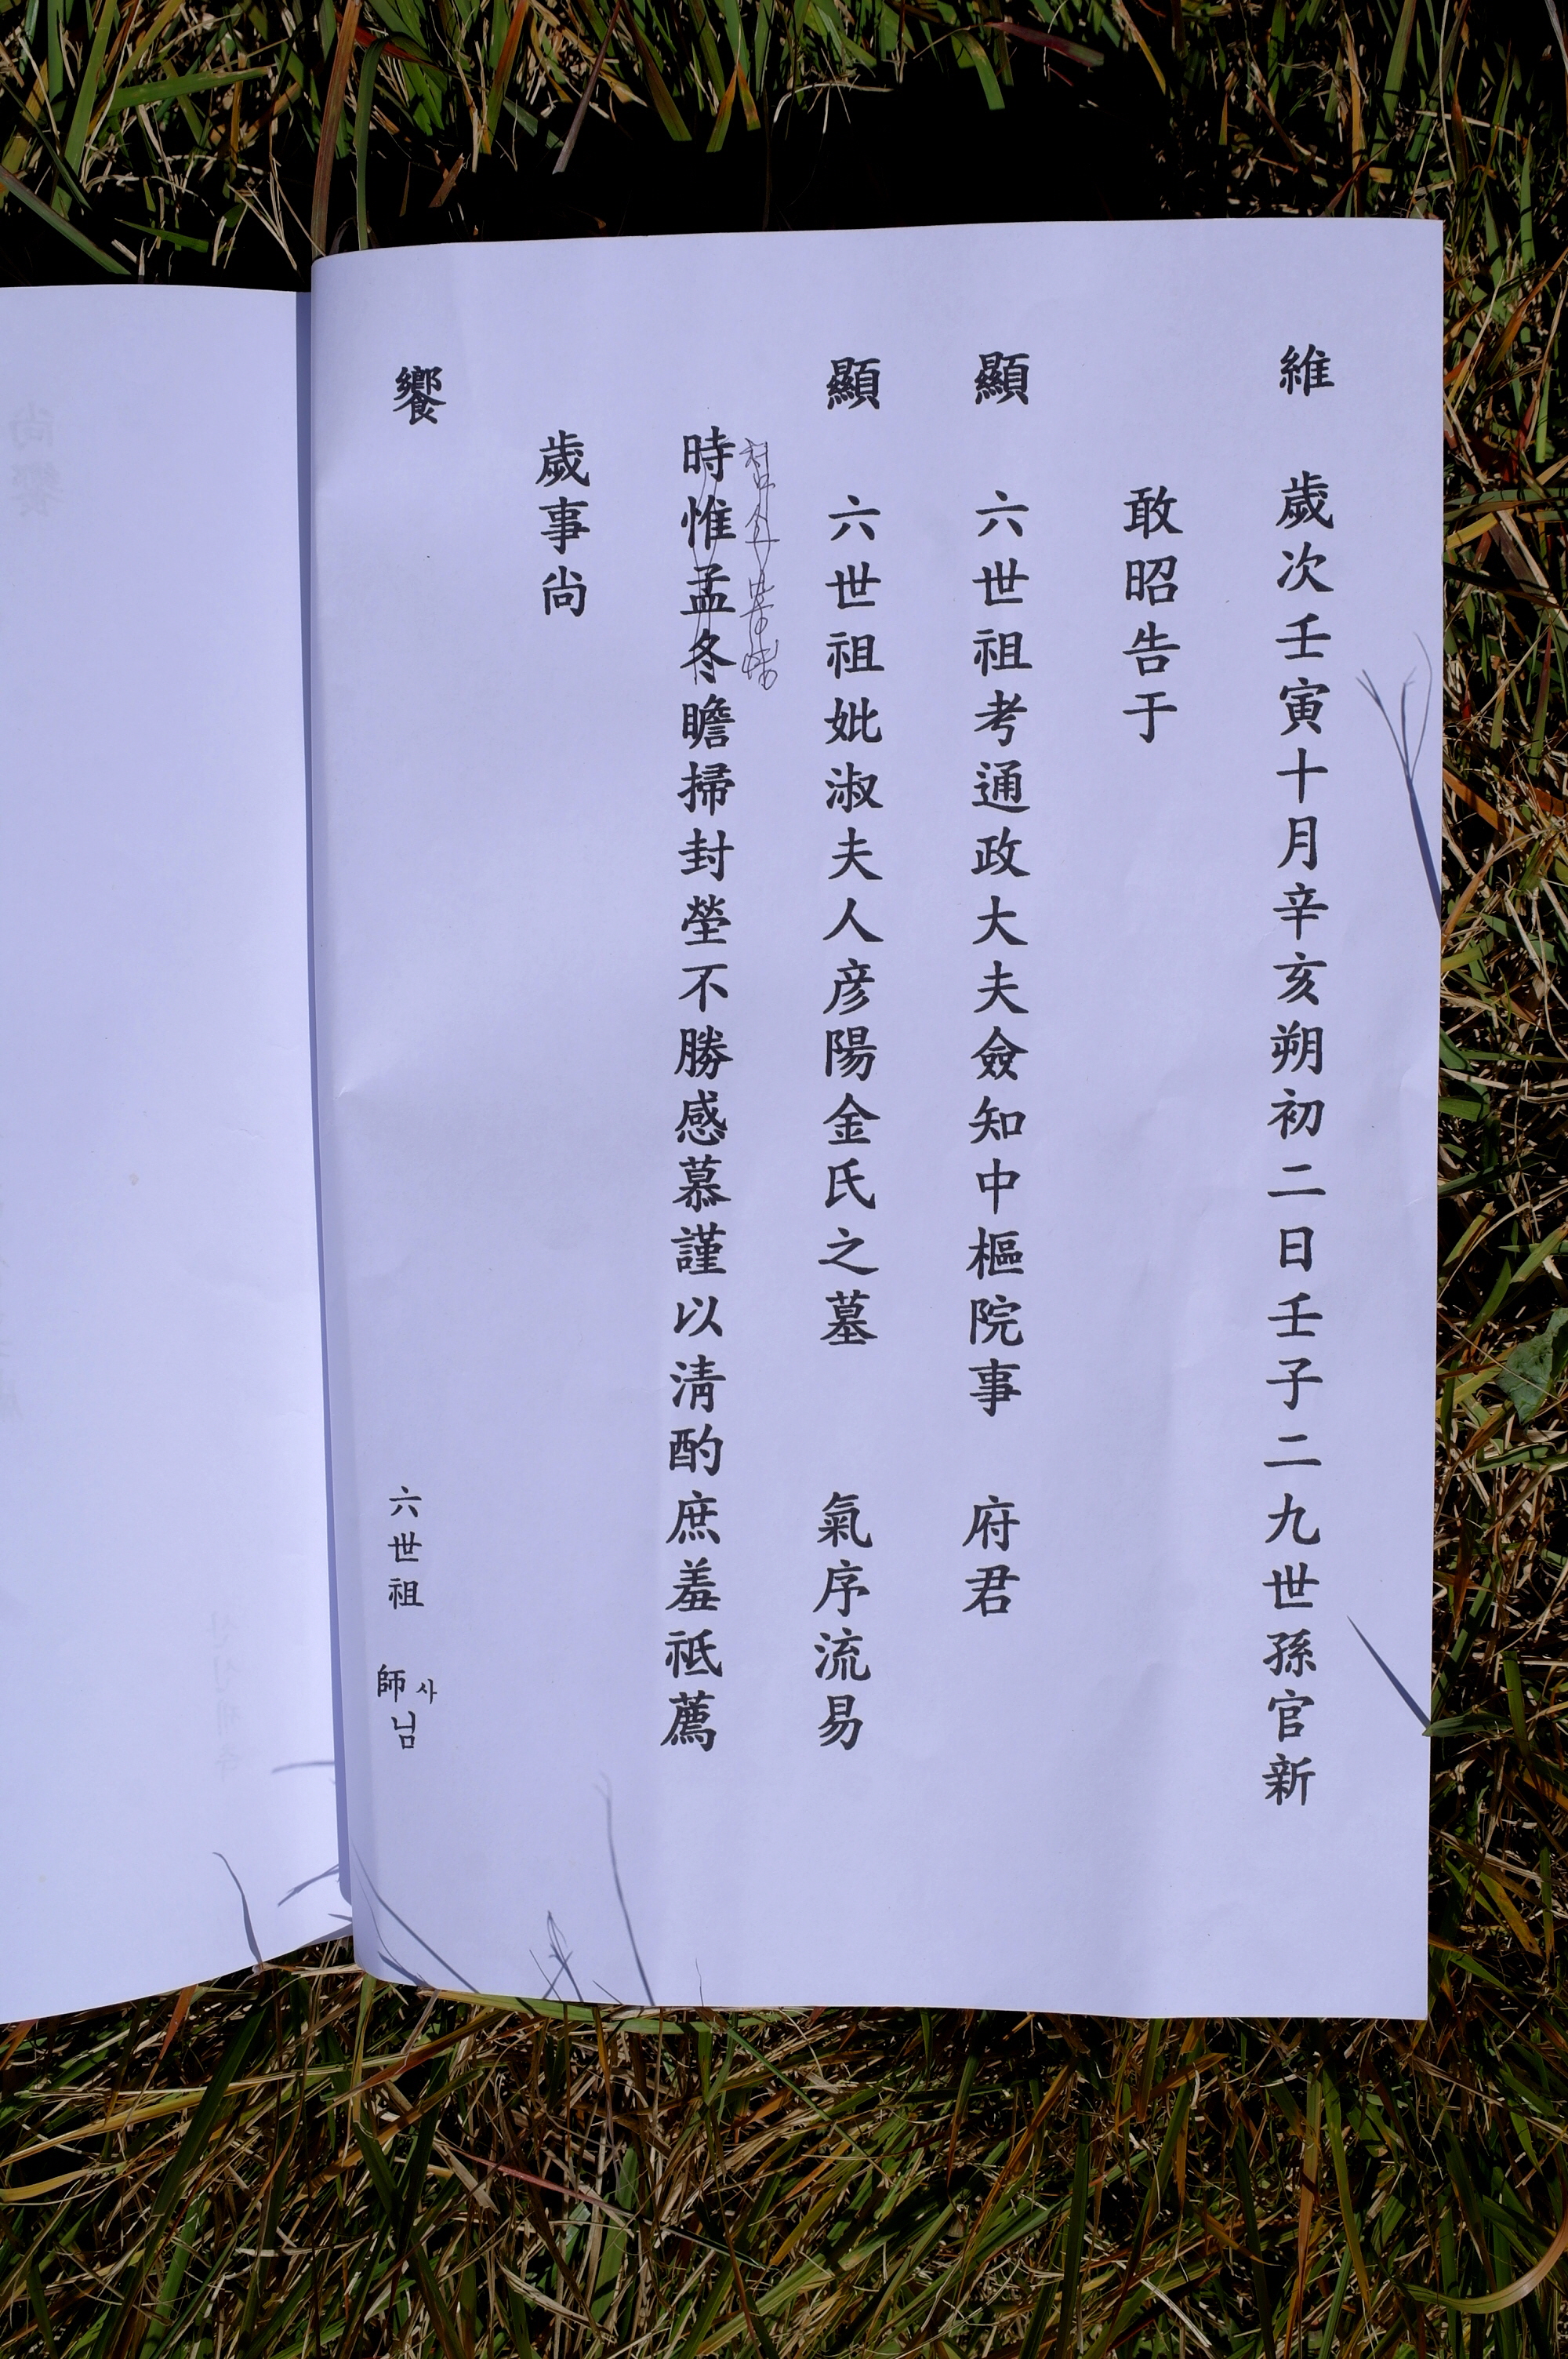 維 歲次壬寅十月辛亥朔初二日壬子二九世孫官新
敢昭告于
顯 六世祖考通政大夫僉知中樞院事 府君
顯 六世祖妣淑夫人彦陽金氏之墓 氣序流易
時惟孟冬瞻掃封塋不勝感慕謹以淸酌庶羞祗薦
歲事尙
饗
六世祖 師사님